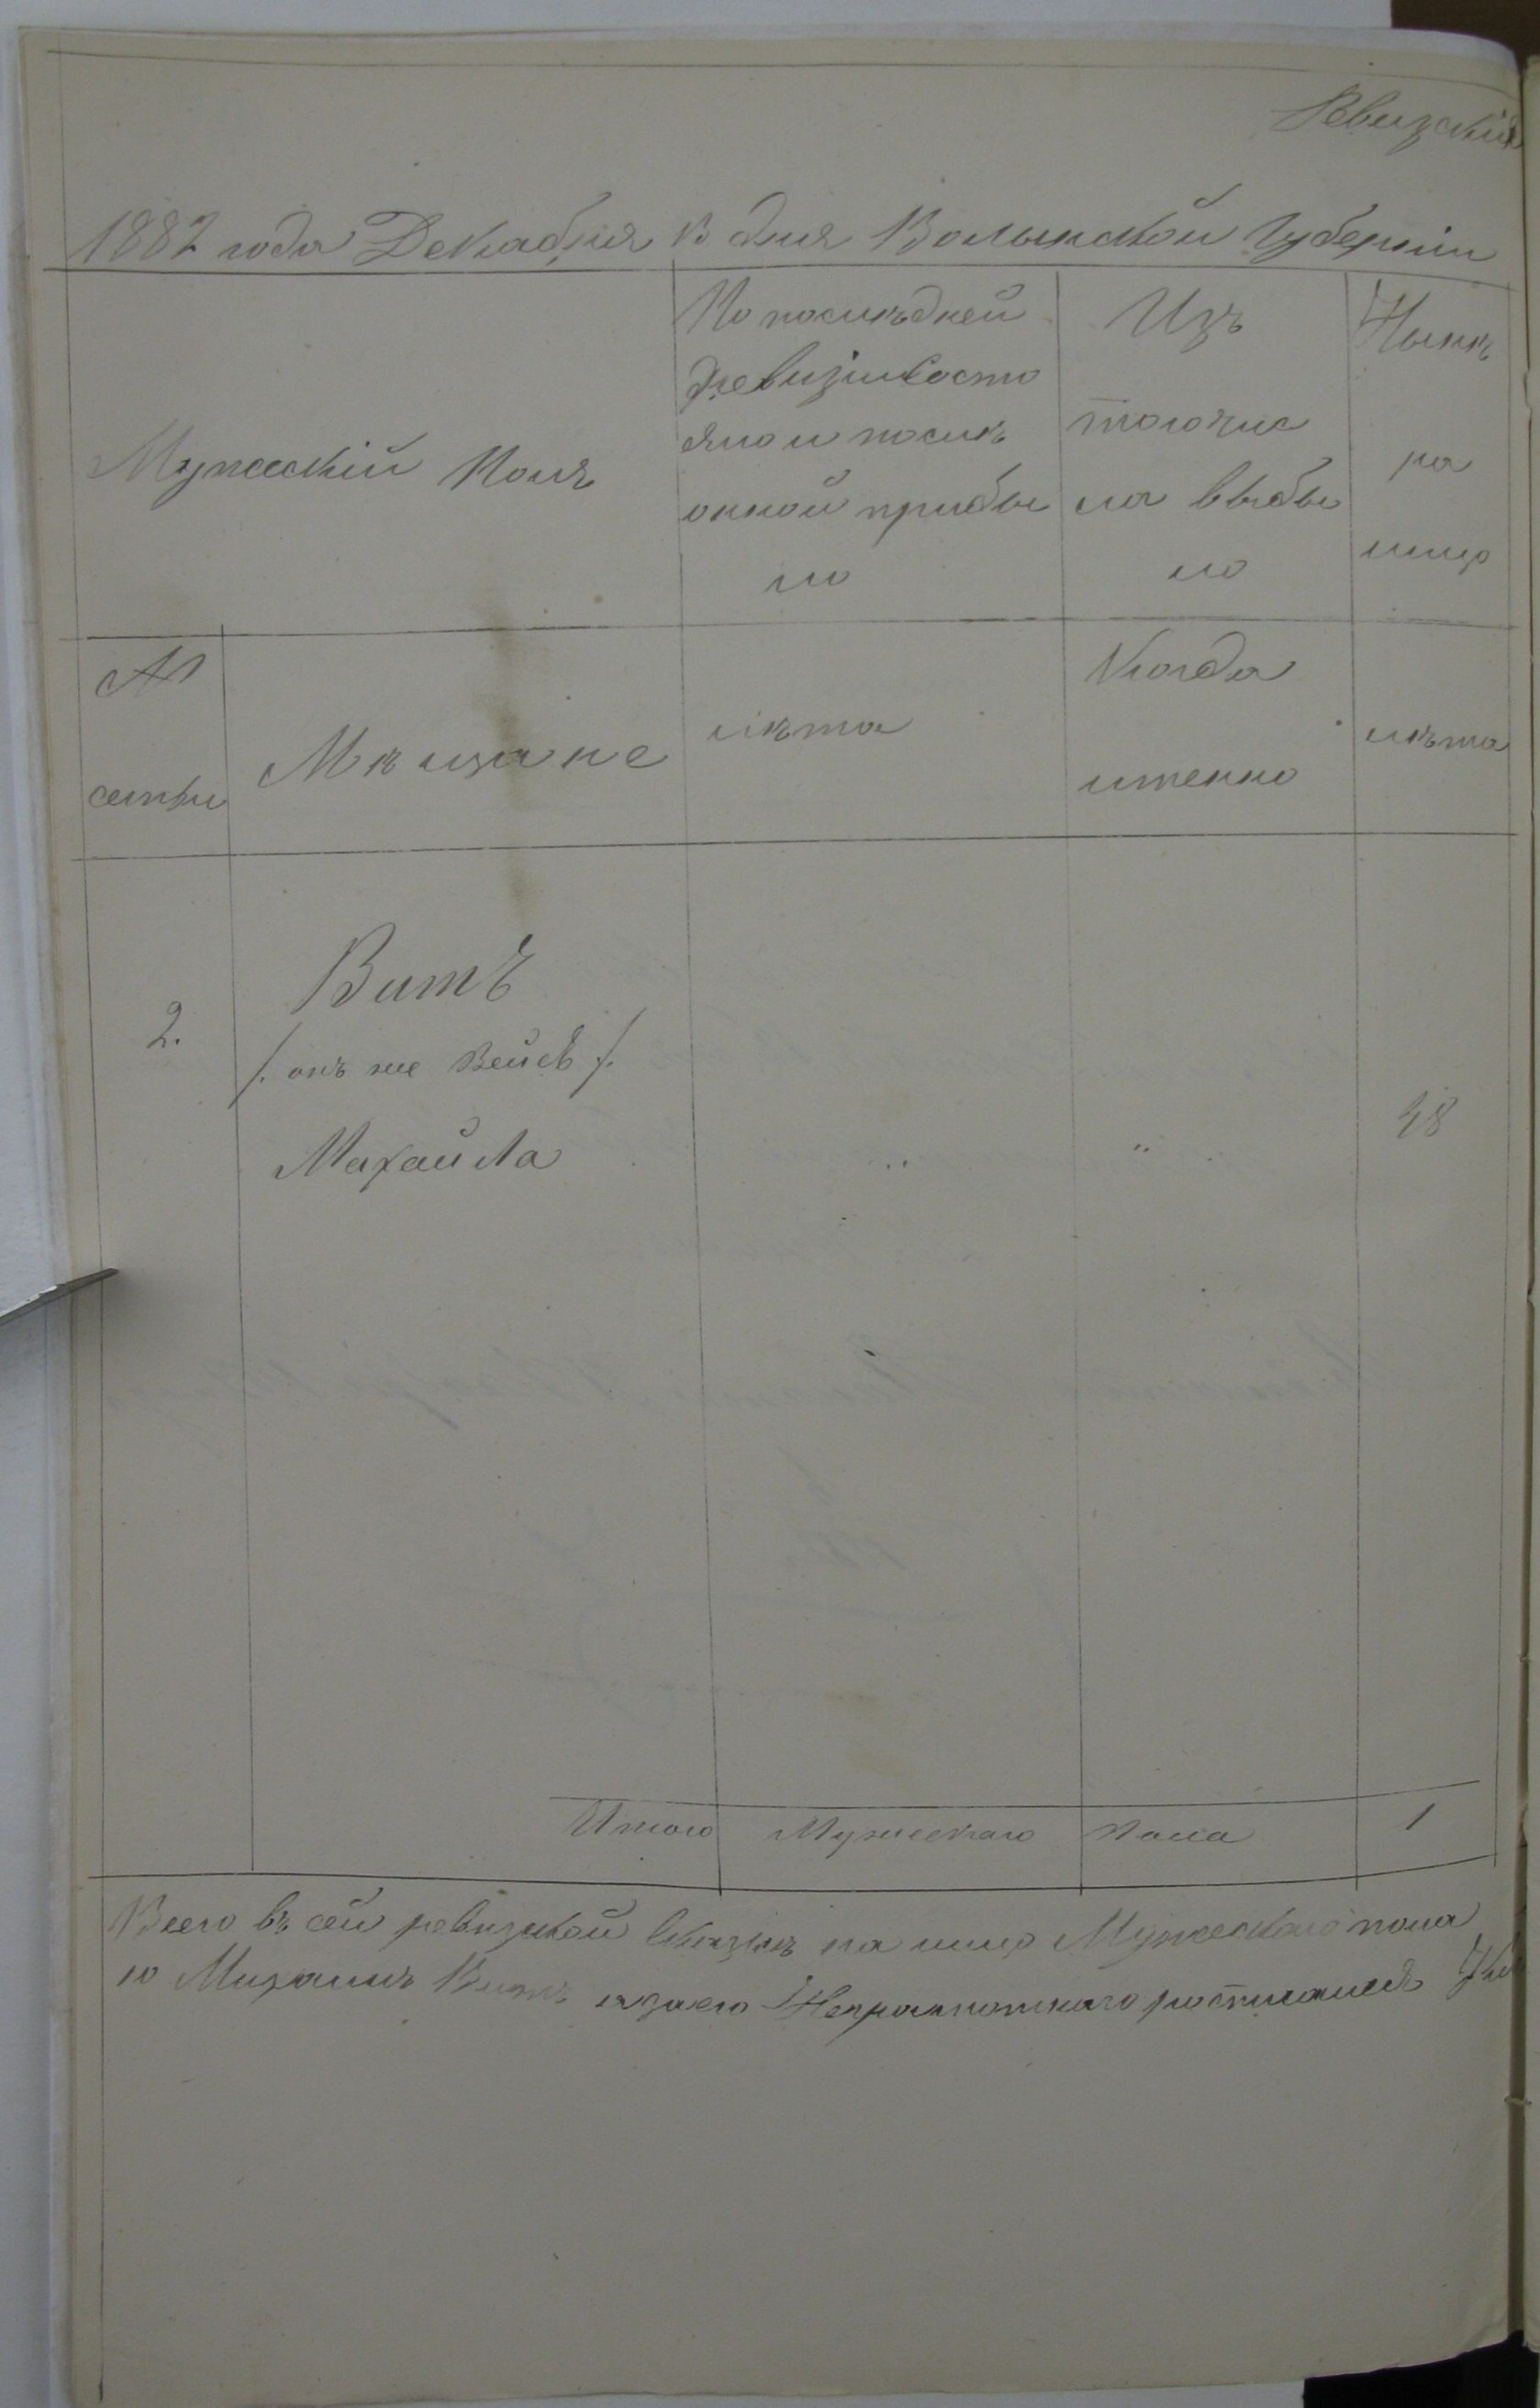 Ревизскiя
1882 года Декабря дня Волынской Губернiи
Мужескiй полъ
По послѣдней
ревизiи состо
яло и послѣ
оной прибы
ло
Изъ
того чис
ла выбы
ло
Нынѣ
на
лицо
№
семьи
Мѣщане
лѣта
Когда
именно
лѣта
2.
Витъ
/. онъ же Вейсъ /.
Махайла
"
"
48
Итого Мужескаго пола 1
Всего въ сей ревизской сказкѣ на лицо Мужескаго пола
ю Михаилъ Витъ а за его Неграмотнаго росписался